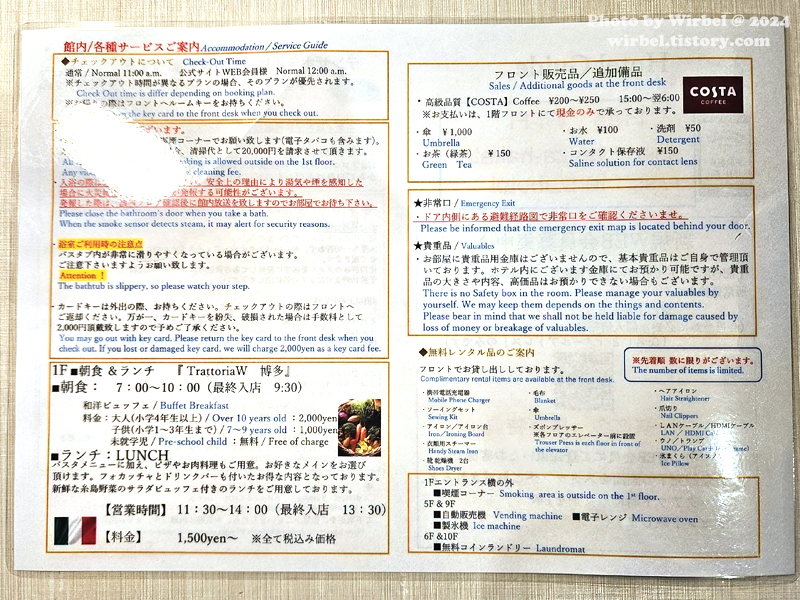 Photo by Wirbel @ 2024
wirbel.tistory.com
館内/各種サービスご案内 Accommodation / Service Guide
◆チェックアウトについて Check-Out Time
通常 / Normal 11:00 a.m. 公式サイトWEB会員様 Normal 12:00 a.m.
※チェックアウト時間が異なるプランの場合、そのプランが優先されます。
Check Out time is differ depending on booking plan.
の際はフロントへルームキーをお持ちください。
the key card to the front desk when you check out.
います。
煙コーナーでお願い致します(電子タバコも含みます)。
清掃代として20,000円を請求させて頂きます。
smoking is allowed outside on the 1st floor.
Any cleaning fee.
・入浴の際に 安全上の理由により湯気や煙を感知した
場合に火災 が発報する可能性がございます。
発報した際は、 確認後に館内放送を致しますのでお部屋でお待ち下さい。
Please close the bathroom's door when you take a bath.
When the smoke sensor detects steam, it may alert for security reasons.
・浴室ご利用時の注意点
バスタブ内が非常に滑りやすくなっている場合がございます。
ご注意下さいますようお願い致します。
Attention !
The bathtub is slippery, so please watch your step.
・カードキーは外出の際、お持ちください。チェックアウトの際はフロントへ
ご返却ください。万が一、カードキーを紛失、破損された場合は手数料として
2,000円頂戴致しますので予めご了承ください。
You may go out with key card. Please return the key card to the front desk when you
check out. If you lost or damaged key card, we will charge 2,000yen as a key card fee.
1F ■朝食 &ランチ 『 TrattoriaW 博多』
■朝食： 7：00～10：00（最終入店 9:30）
和洋ビュッフェ / Buffet Breakfast
料金：大人(小学4年生以上) / Over 10 years old ：2,000yen
子供(小学1～3年生まで) / 7～9 years old ：1,000yen
未就学児 / Pre-school child ：無料 / Free of charge
■ランチ：LUNCH
パスタメニューに加え、ピザやお肉料理もご用意。お好きなメインをお選び
頂けます。フォカッチャとドリンクバーも付いたお得な内容となっております。
新鮮な糸島野菜のサラダビュッフェ付きのランチをご用意しております。
【営業時間】 11：30～14：00（最終入店 13：30）
【料金】 1,500yen～ ※全て税込み価格
フロント販売品／追加備品
Sales / Additional goods at the front desk
・高級品質【COSTA】Coffee ¥200～¥250 15:00～翌6:00
※お支払いは、1階フロントにて現金のみで承っております。
COSTA
COFFEE
・傘 ¥1,000 ・お水 ¥100 ・洗剤 ¥50
Umbrella Water Detergent
・お茶（緑茶） ¥150 ・コンタクト保存液 ¥150
Green Tea Saline solution for contact lens
★非常口 / Emergency Exit
・ドア内側にある避難経路図で非常口をご確認くださいませ。
Please be informed that the emergency exit map is located behind your door.
★貴重品 / Valuables
・お部屋に貴重品用金庫はございませんので、基本貴重品はご自身で管理頂
いております。ホテル内にございます金庫にてお預かり可能ですが、貴重
品の大きさや内容、高価品はお預かりできない場合もございます。
There is no Safety box in the room. Please manage your valuables by
yourself. We may keep them depends on the things and contents.
Please bear in mind that we shall not be held liable for damage caused by
loss of money or breakage of valuables.
◆無料レンタル品のご案内
フロントでお貸し出ししております。
Complimentary rental items are available at the front desk.
※先着順 数に限りがございます。
The number of items is limited.
・携帯電話充電器
Mobile Phone Charger
・ソーイングセット
Sewing Kit
・アイロン/アイロン台
Iron/Ironing Board
・衣類用スチーマー
Handy Steam Iron
・靴 乾燥機 2台
Shoes Dryer
・毛布
Blanket
・傘
Umbrella
・ズボンプレッサー
※各フロアのエレベーター前に設置
Trouser Press is each floor in front of
the elevator
・ヘアアイロン
Hair Straightener
・爪切り
Nail Clippers
・LANケーブル／HDMIケーブル
LAN / HDMI
・ウノ／トランプ
UNO／Play Card
・氷まくら（アイス
Ice Pillow
1Fエントランス横の外
■喫煙コーナー Smoking area is outside on the 1st floor.
5F & 9F
■自動販売機 Vending machine ■電子レンジ Microwave oven
■製氷機 Ice machine
6F &10F
■無料コインランドリー Laundromat